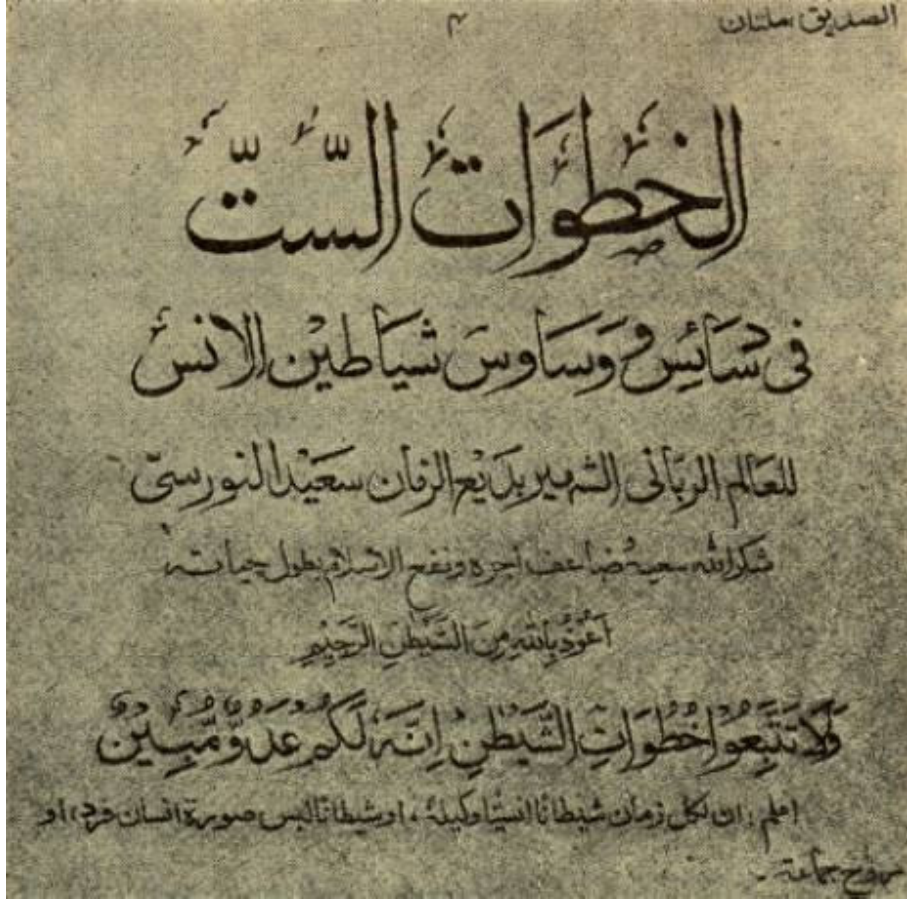 الصديق ملتان
٣
الخطوات الستّ
فى دسَائِسِ وَوَسَاوسَ شيَاطيْن الانس
للعالم الربّانى الشهير بديع الزمان سعيد النورسىّ
شكر الله سعيه ضاعف اجره ونفع الاسلام بطول حياته
اَعُوذُ بِاللهِ مِنَ الشَّيْطٰنِ الرَّجِيْمِ
وَلَا تَتَّبِعُوا خُطُوَاتِ الشَّيْطٰنِ اِنَّهٗ لَكُمْ عَدُوٌّ مُّبِيْنٌ
اعلم: ان لكل زمان شيطانًا انسيًا وكيله، او شيطانًا لبس صورة انسان فرد، او
روح جماعة.